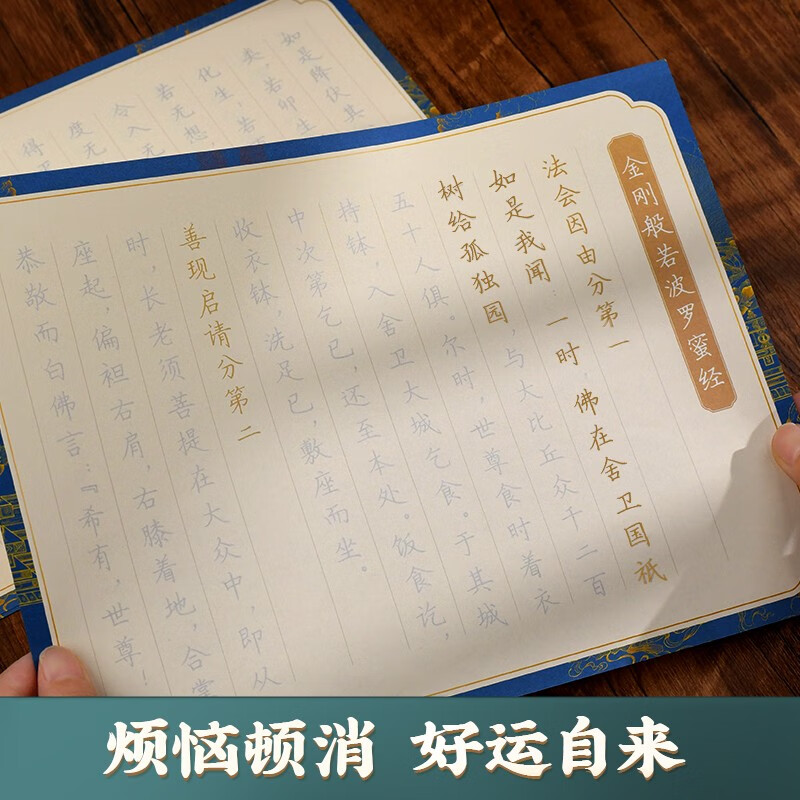 如是降伏其
类，若卵生
化生，若
若无想，
令入无
度无
得
金刚般若波罗蜜经
法会因由分第一
如是我闻：一时，佛在舍卫国祇
树给孤独园，与大比丘众千二百
五十人俱。尔时，世尊食时着衣
持钵，入舍卫大城乞食。于其城
中次第乞已，还至本处。饭食讫，
收衣钵，洗足已，敷座而坐。
善现启请分第二
时，长老须菩提在大众中，即从
座起，偏袒右肩，右膝着地，合掌
恭敬而白佛言：『希有，世尊！
烦恼顿消 好运自来